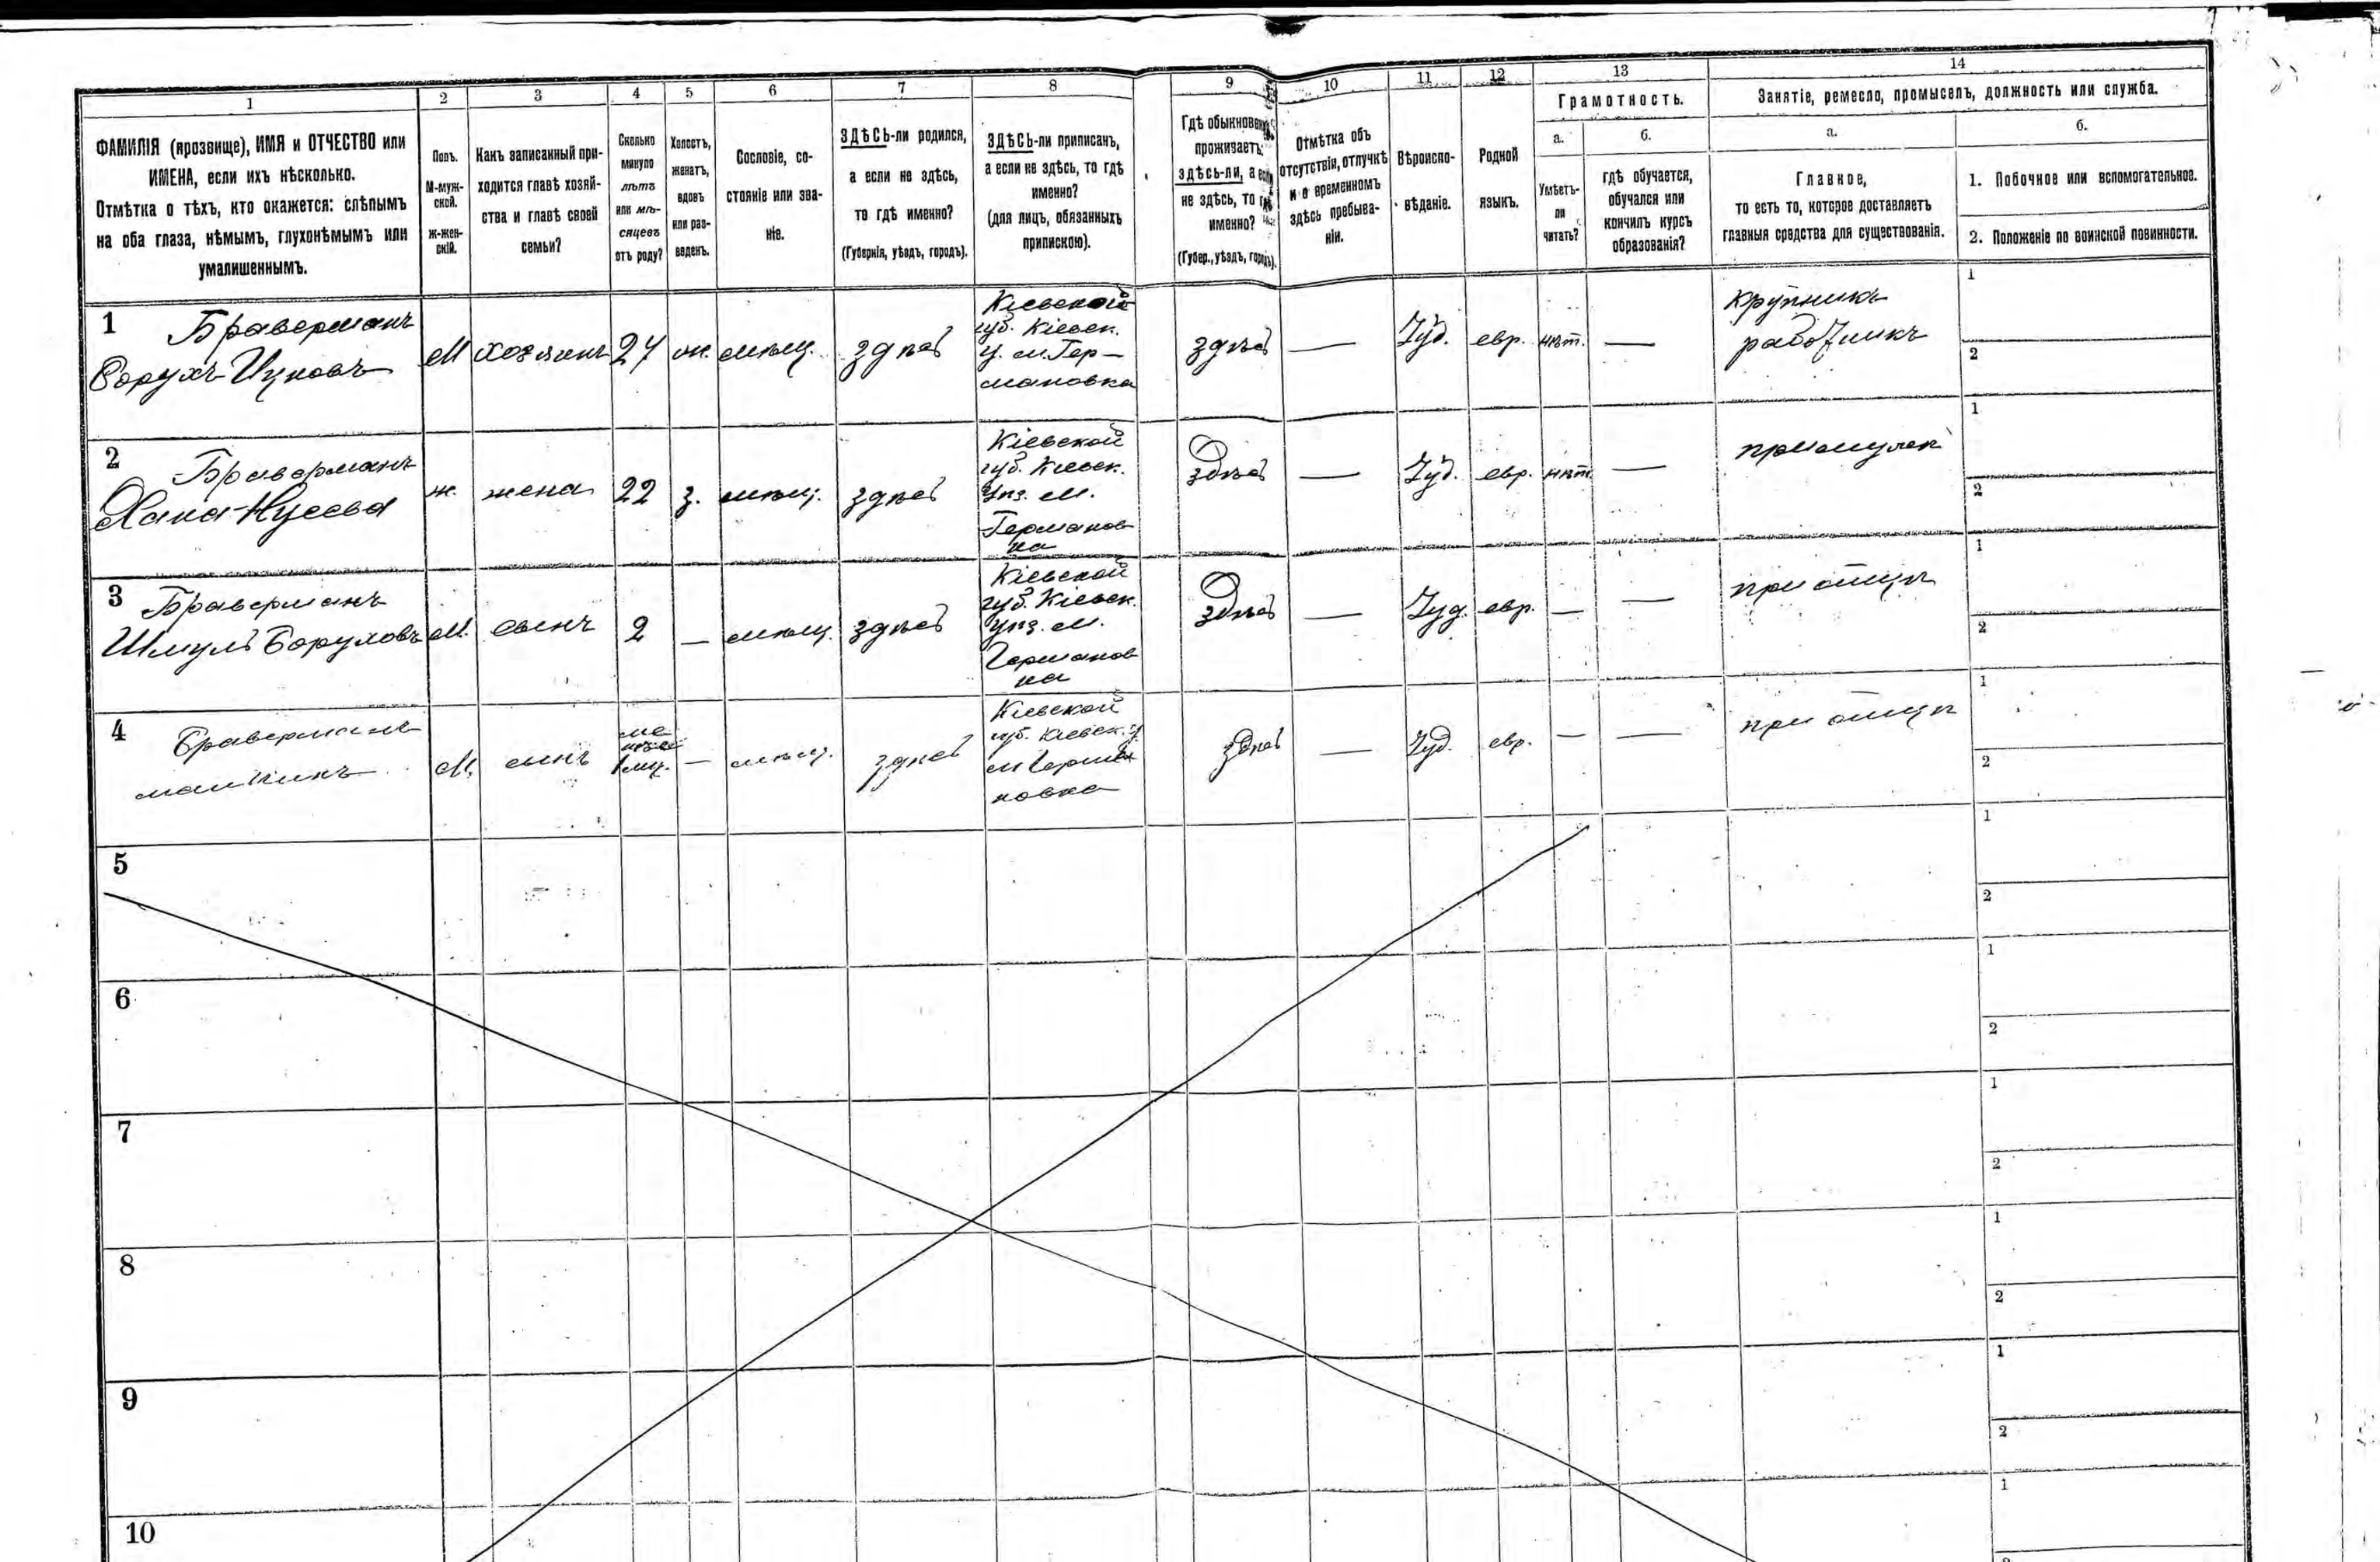 1 2 3 4 5 6 7 8 9 10 11 12 13 14
ФАМИЛІЯ (прозвище), ИМЯ и ОТЧЕСТВО или
ИМЕНА, если ихъ нѣсколько.
Отмѣтка о тѣхъ, кто окажется: слѣпымъ
на оба глаза, нѣмымъ, глухонѣмымъ или
умалишеннымъ.
Полъ.
М-муж-
ской.
ж-жен-
скій.
Какъ записанный при-
ходится главѣ хозяй-
ства и главѣ своей
семьи?
Сколько
минуло
лѣтъ
или мѣ-
сяцевъ
отъ роду?
Холостъ,
женатъ,
вдовъ
или раз-
веденъ.
Сословіе, со-
стояніе или зва-
ніе.
ЗДѢСЬ-ли родился,
а если не здѣсь,
то гдѣ именно?
(Губернія, уѣздъ, городъ).
ЗДѢСЬ-ли приписанъ,
а если не здѣсь, то гдѣ
именно?
(для лицъ, обязанныхъ
припискою).
Гдѣ обыкновенно
проживаетъ:
здѣсь-ли, а если
не здѣсь, то гдѣ
именно?
(Губер., уѣздъ, городъ).
Отмѣтка объ
отсутствіи, отлучкѣ
и о временномъ
здѣсь пребыва-
ніи.
Вѣроиспо-
вѣданіе.
Родной
языкъ.
Грамотность.
а.
Умѣетъ-
ли
читать?
б.
гдѣ обучается,
обучался или
кончилъ курсъ
образованія?
Занятіе, ремесло, промыселъ, должность или служба.
а.
Главное,
то есть то, которое доставляетъ
главныя средства для существованія.
б.
1. Побочное или вспомогательное.
2. Положеніе по воинской повинности.
1
Браверманъ
Борухъ Ицковъ
М
хозяинъ
24
ж.
мѣщ.
здѣсь
Кіевской
губ. Кіевск.
у. м. Гер-
мановка
здѣсь
—
Іуд.
евр.
нѣт.
—
крупникъ
работникъ
1
2
2
Браверманъ
Хана Нусева
ж.
жена
22
з.
мѣщ.
здѣсь
Кіевской
губ. Кіевск.
уѣз. м.
Германов
ка
здѣсь
—
Іуд.
евр.
нѣт.
—
при мужѣ
1
2
3
Браверманъ
Шмуль Боруховъ
М.
сынъ
2
—
мѣщ.
здѣсь
Кіевской
губ. Кіевск.
уѣз. м.
Германов
ка
здѣсь
—
Іуд.
евр.
—
—
при отцѣ
1
2
4
Браверманъ
М.
сынъ
1 мѣ.
—
мѣщ.
здѣсь
Кіевской
губ. Кіевск. у.
м Герма
новка
здѣсь
—
Іуд.
евр.
—
—
при отцѣ
1
2
5
1
2
6
1
2
7
1
2
8
1
2
9
1
2
10
1